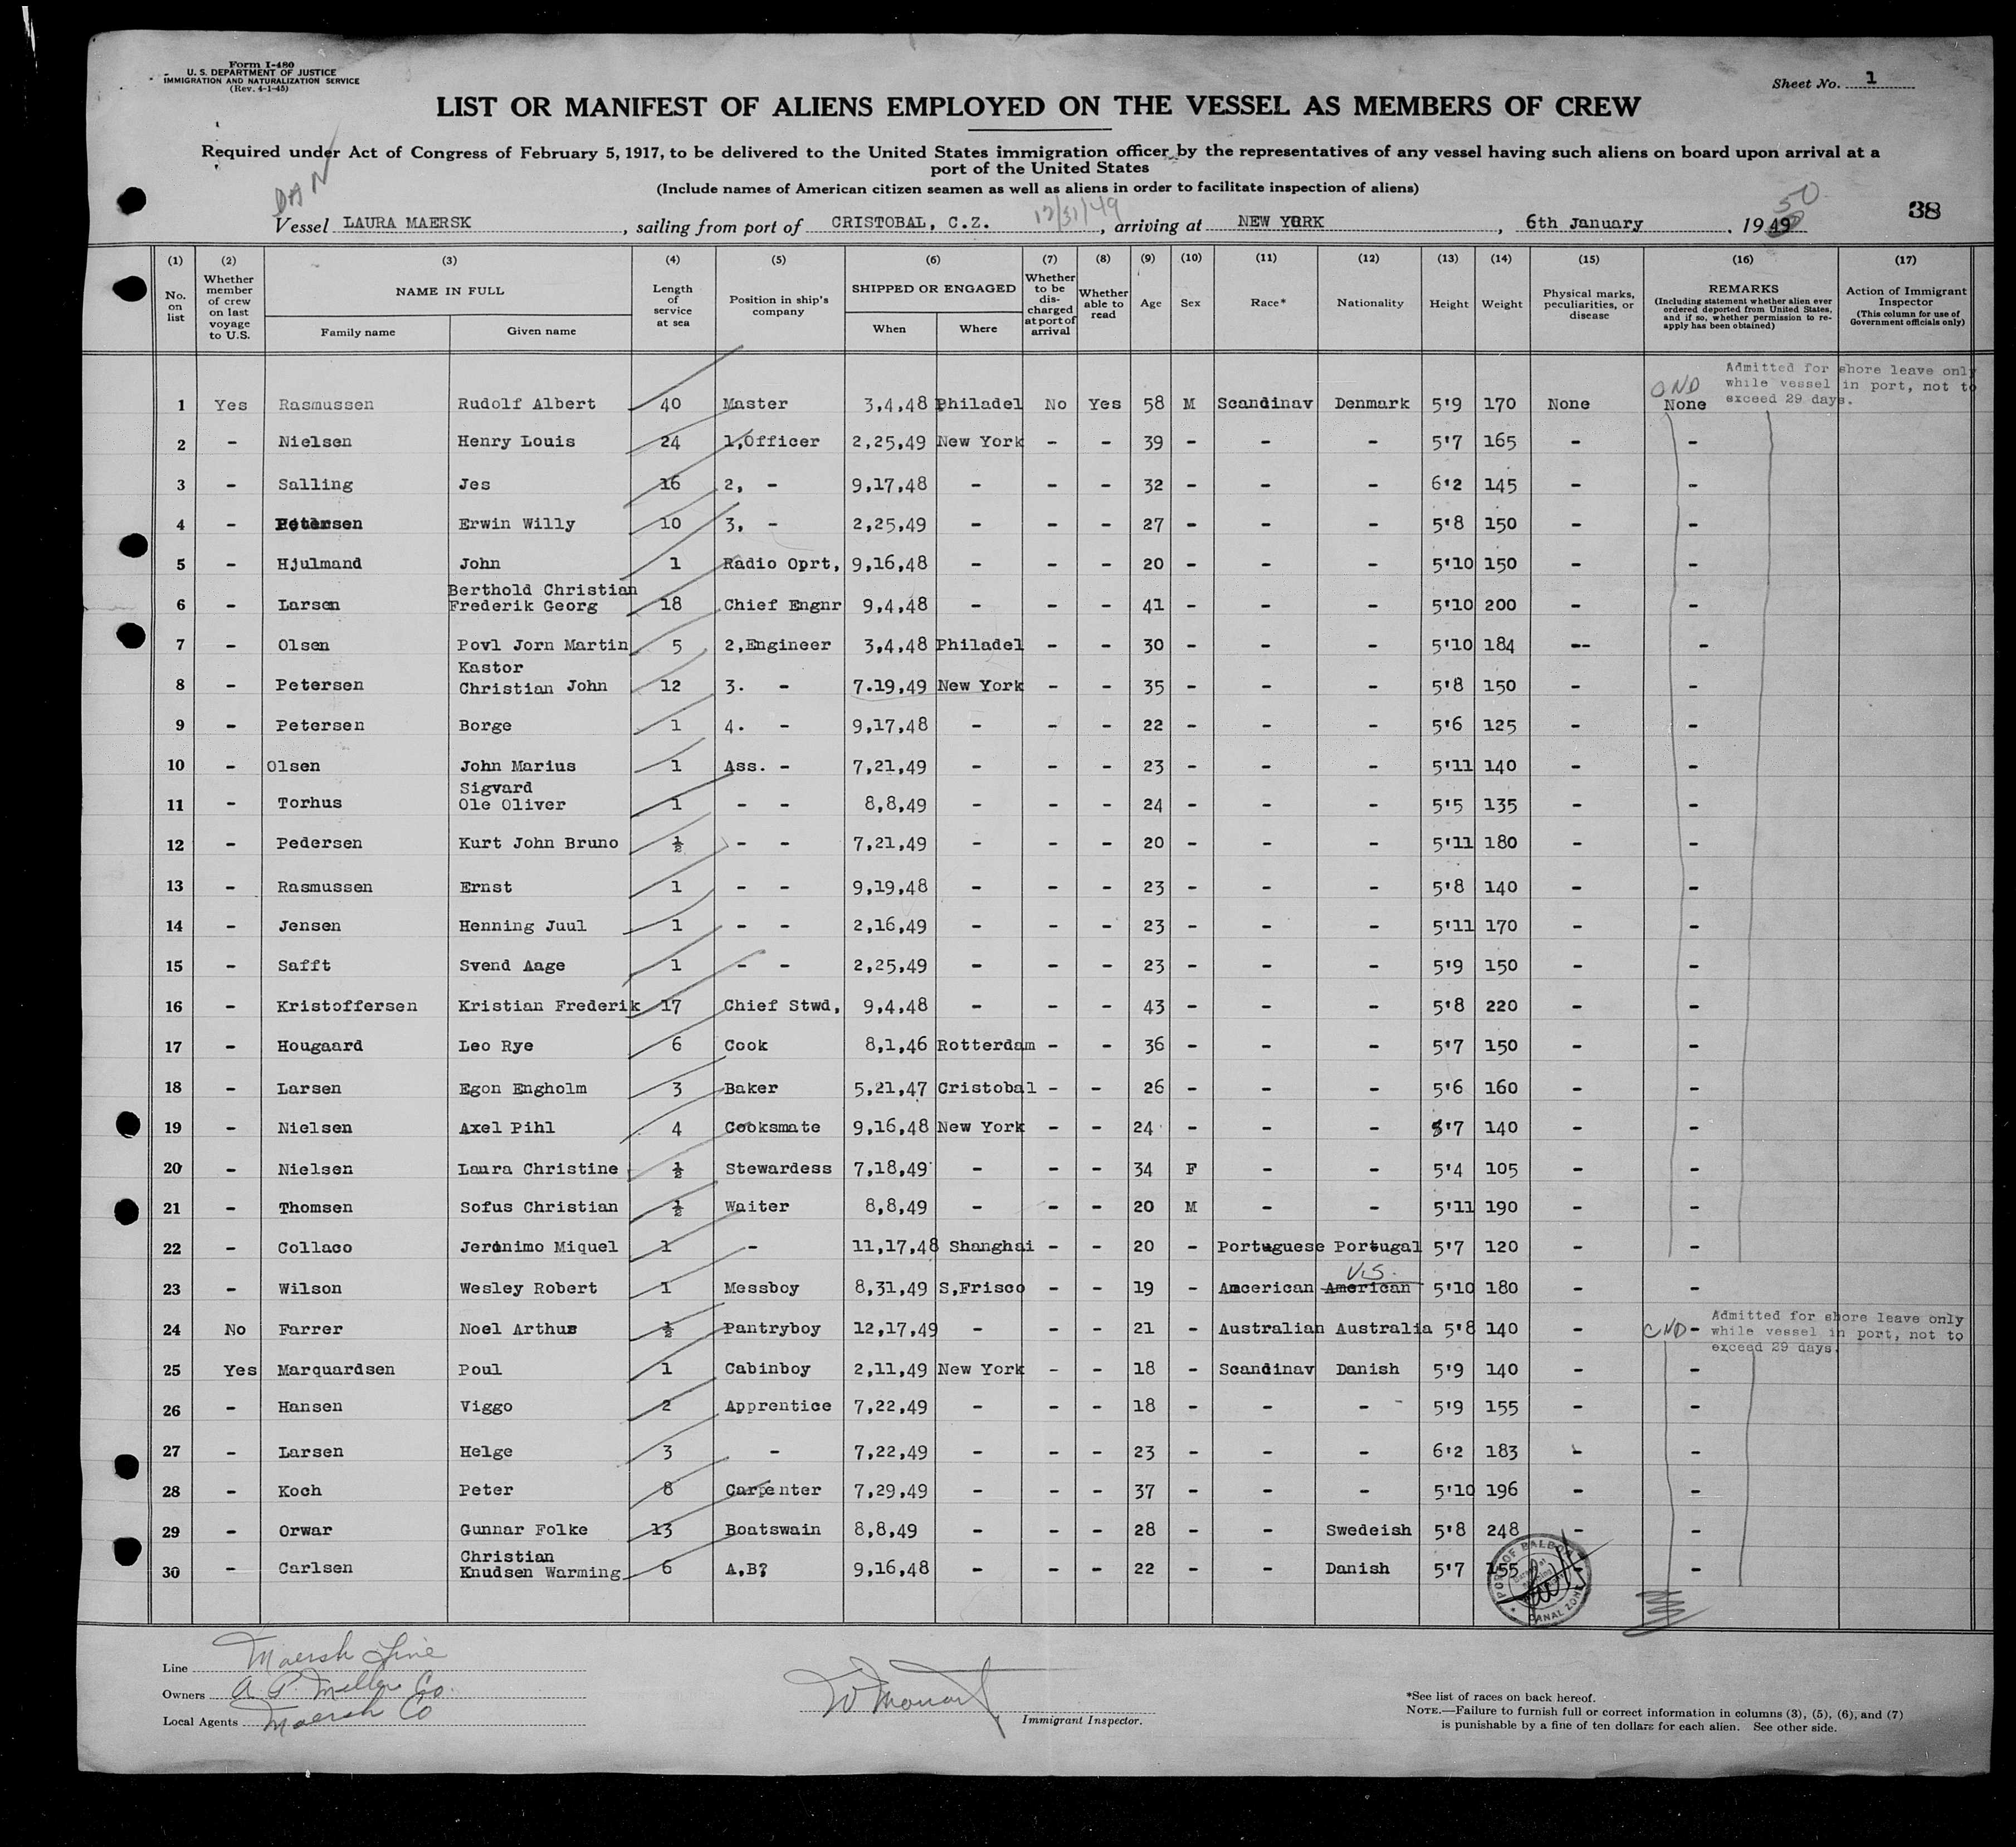 Form I-480
U. S. DEPARTMENT OF JUSTICE
IMMIGRATION AND NATURALIZATION SERVICE
(Rev. 4-1-45)
Sheet No. 1
LIST OR MANIFEST OF ALIENS EMPLOYED ON THE VESSEL AS MEMBERS OF CREW
Required under Act of Congress of February 5, 1917, to be delivered to the United States immigration officer by the representatives of any vessel having such aliens on board upon arrival at a
port of the United States
(Include names of American citizen seamen as well as aliens in order to facilitate inspection of aliens)
DAN
12/31/49
50
38
Vessel LAURA MAERSK, sailing from port of CRISTOBAL, C.Z., arriving at NEW YORK, 6th January, 1949
(1) (2) (3) (4) (5) (6) (7) (8) (9) (10) (11) (12) (13) (14) (15) (16) (17)
No. on list
Whether member of crew on last voyage to U.S.
NAME IN FULL
Family name
Given name
Length of service at sea
Position in ship's company
SHIPPED OR ENGAGED
When
Where
Whether to be discharged at port of arrival
Whether able to read
Age
Sex
Race*
Nationality
Height
Weight
Physical marks, peculiarities, or disease
REMARKS
(Including statement whether alien ever ordered deported from United States, and if so, whether permission to re-apply has been obtained)
Action of Immigrant Inspector
(This column for use of Government officials only)
Admitted for shore leave only
while vessel in port, not to
exceed 29 days.
1 Yes Rasmussen Rudolf Albert 40 Master 3,4,48 Philadel No Yes 58 M Scandinav Denmark 5'9 170 None None
2 - Nielsen Henry Louis 24 1,Officer 2,25,49 New York - - 39 - - - 5'7 165 - -
3 - Salling Jes 16 2, - 9,17,48 - - - 32 - - - 6'2 145 - -
4 - Petersen Erwin Willy 10 3, - 2,25,49 - - - 27 - - - 5'8 150 - -
5 - Hjulmand John 1 Radio Oprt, 9,16,48 - - - 20 - - - 5'10 150 - -
Berthold Christian
6 - Larsen Frederik Georg 18 Chief Engnr 9,4,48 - - - 41 - - - 5'10 200 - -
7 - Olsen Povl Jorn Martin 5 2,Engineer 3,4,48 Philadel - - 30 - - - 5'10 184 -- -
Kastor
8 - Petersen Christian John 12 3. - 7.19,49 New York - - 35 - - - 5'8 150 - -
9 - Petersen Borge 1 4. - 9,17,48 - - - 22 - - - 5'6 125 - -
10 - Olsen John Marius 1 Ass. - 7,21,49 - - - 23 - - - 5'11 140 - -
Sigvard
11 - Torhus Ole Oliver 1 - - 8,8,49 - - - 24 - - - 5'5 135 - -
12 - Pedersen Kurt John Bruno ½ - - 7,21,49 - - - 20 - - - 5'11 180 - -
13 - Rasmussen Ernst 1 - - 9,19,48 - - - 23 - - - 5'8 140 - -
14 - Jensen Henning Juul 1 - - 2,16,49 - - - 23 - - - 5'11 170 - -
15 - Safft Svend Aage 1 - - 2,25,49 - - - 23 - - - 5'9 150 - -
16 - Kristoffersen Kristian Frederik 17 Chief Stwd, 9,4,48 - - - 43 - - - 5'8 220 - -
17 - Hougaard Leo Rye 6 Cook 8,1,46 Rotterdam - - 36 - - - 5'7 150 - -
18 - Larsen Egon Engholm 3 Baker 5,21,47 Cristobal - - 26 - - - 5'6 160 - -
19 - Nielsen Axel Pihl 4 Cooksmate 9,16,48 New York - - 24 - - - 5'7 140 - -
20 - Nielsen Laura Christine ½ Stewardess 7,18,49 - - - 34 F - - 5'4 105 - -
21 - Thomsen Sofus Christian ½ Waiter 8,8,49 - - - 20 M - - 5'11 190 - -
22 - Collaco Jeronimo Miquel 1 - 11,17,48 Shanghai - - 20 - Portuguese Portugal 5'7 120 - -
U.S.
23 - Wilson Wesley Robert 1 Messboy 8,31,49 S,Frisco - - 19 - Amcerican American 5'10 180 - -
Admitted for shore leave only
while vessel in port, not to
exceed 29 days.
24 No Farrer Noel Arthur ½ Pantryboy 12,17,49 - - - 21 - Australian Australia 5'8 140 - -
25 Yes Marquardsen Poul 1 Cabinboy 2,11,49 New York - - 18 - Scandinav Danish 5'9 140 - -
26 - Hansen Viggo 2 Apprentice 7,22,49 - - - 18 - - - 5'9 155 - -
27 - Larsen Helge 3 - 7,22,49 - - - 23 - - - 6'2 183 - -
28 - Koch Peter 8 Carpenter 7,29,49 - - - 37 - - - 5'10 196 - -
29 - Orwar Gunnar Folke 13 Boatswain 8,8,49 - - - 28 - - Swedeish 5'8 248 - -
Christian
30 - Carlsen Knudsen Warming 6 A,B? 9,16,48 - - - 22 - - Danish 5'7 155 -
PORT OF BALBOA
CANAL ZONE
Line Maersk Line
Owners A. P. Moller Co.
Local Agents Maersk Co
Immigrant Inspector.
*See list of races on back hereof.
NOTE.—Failure to furnish full or correct information in columns (3), (5), (6), and (7)
is punishable by a fine of ten dollars for each alien. See other side.